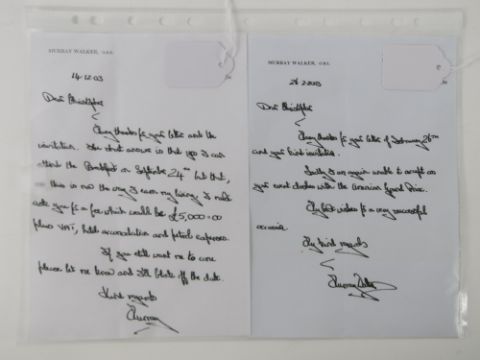 MURRAY WALKER, O.B.E.
14.12.03
Dear Christopher
Many thanks for your letter and the
invitation. The short answer is that yes I can
attend the Breakfast on September 24th but that,
as this is now the way I earn my living, I must
ask you for a fee which would be £5,000-00
plus VAT, hotel accomodation and petrol expenses.
If you still want me to come
please let me know and I'll blank off the date.
Kind regards
Murray
MURRAY WALKER, O.B.E.
Dear Christopher
Many thanks for your letter of February 26th
and your kind invitation.
Sadly I am again unable to accept as
your event clashes with the Ukrainian Grand Prix.
My best wishes for a very successful
occasion.
My kind regards
Murray Walker